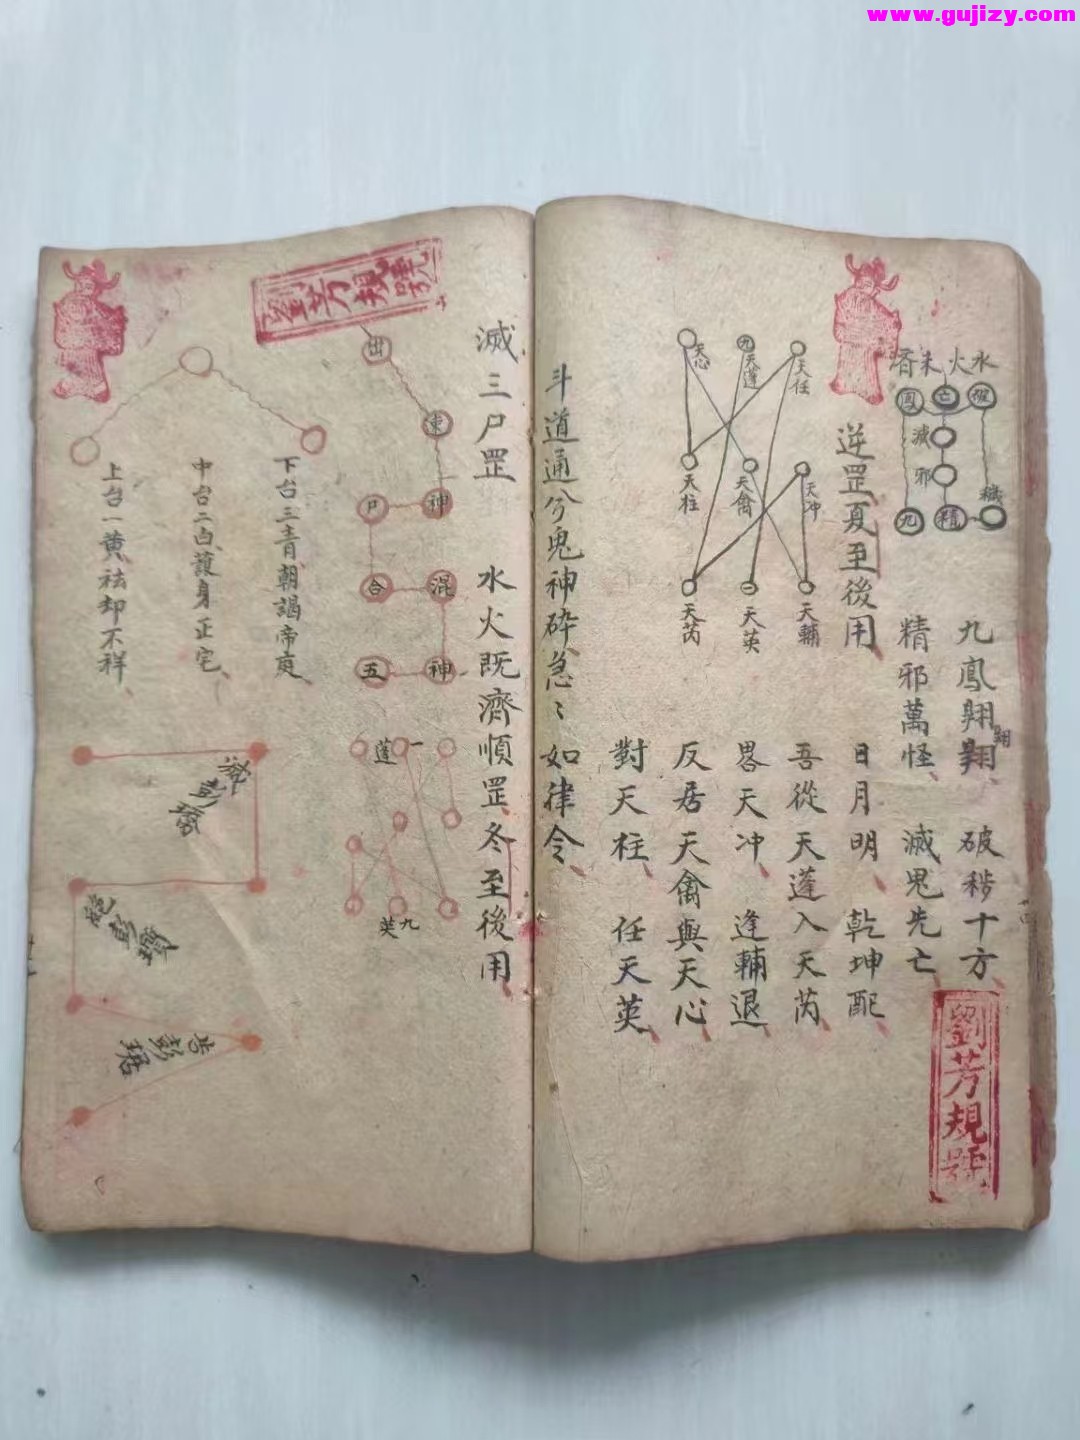 www.gujizy.com
水火未濟
鳳 亡 破
滅
邪
穢
九 精
九鳳翱翔翔 破穢十方
精邪萬怪 滅鬼先亡
逆罡夏至後用
日月明 乾坤配
吾從天蓬入天芮
畧天冲 逢輔退
反居天禽與天心
對天柱 任天英
天心 九天蓬 天任
天柱 天禽 天冲
天芮 一天英 天輔
斗道通兮鬼神碎急〻如律令
劉芳規號
滅三尸罡 水火既濟順罡冬至後用
劉芳規號
出
東
神
尸
合
混
神
五
蓬 一
英 九
下台三青朝謁帝庭
中台二白護身正宅
上台一黃祛却不祥
彭
彭
彭琚